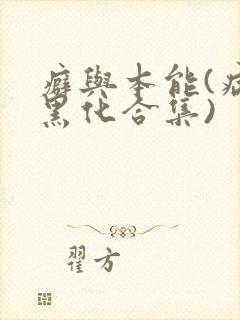 癖與本能(病
黑化合集)
翟方